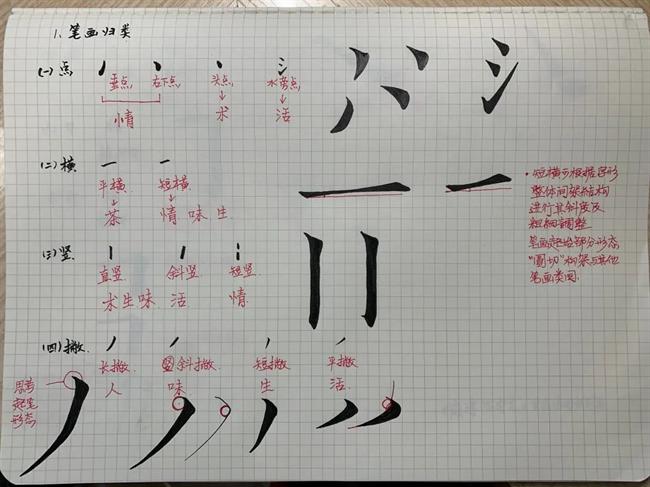 1、笔画归类
(一)点
垂点 右下点 头点 水旁点
情 术 活
(二)横
平横 短横
茶 情 味 生
(三)竖
直竖 斜竖 短竖
术生味 活 情
(四)撇
长撇 斜撇 短撇 平撇
人 味 生 活
思考
起笔
形态
·短横可根据字形
整体间架结构
进行其斜度及
粗细調整
笔画起始部分形态
"圆切"构架与其他
笔画类同